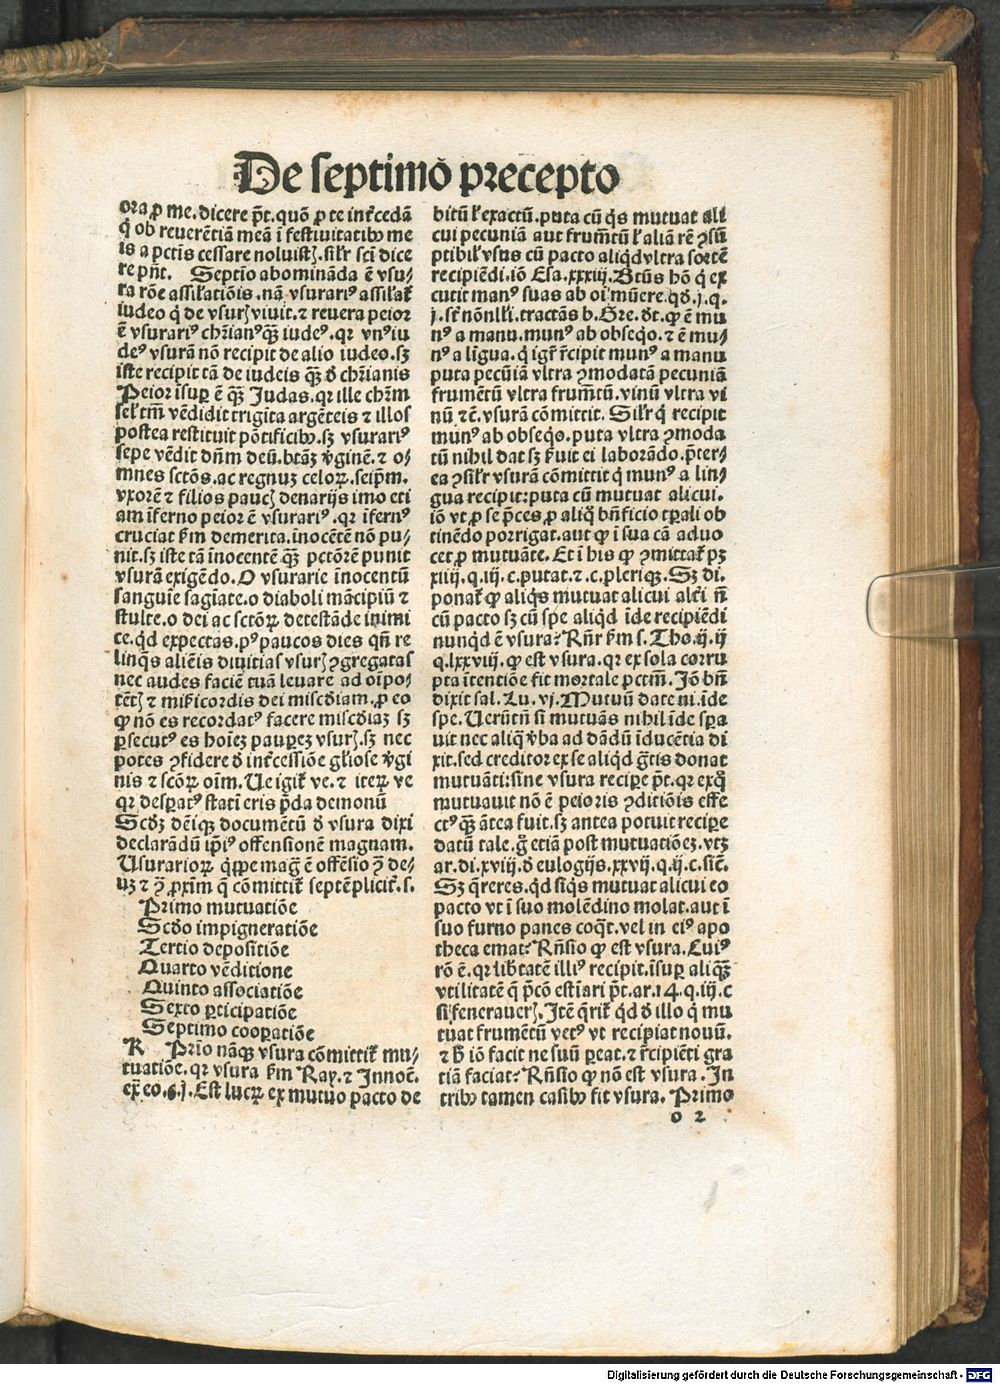 De septimo precepto
ora ꝓ me. dicere pōt. quō ꝓ te int̄cedā
q̄ ob reverētiā meā ī festivitatibꝰ me
is a pctīs cessare noluistꝫ. sil̄r scī dice
re pn̄t. Septīo abomināda ē vsu⸗
ra rōe assil̄atiōis. nā vsurariꝰ assil̄at̄
iudeo q̄ de vsurꝫ viuit. ⁊ revera peior
ē vsurariꝰ chr̄ianꝰ qꝫ̄ iudeꝰ. qr vnꝰ iu
deꝰ vsurā nō recipit de alio iudeo. sꝫ
iste recipit tā de iudeis qꝫ̄ d̄ chr̄ianis
Peior īsuꝑ ē qꝫ̄ Judas. qr ille chr̄m
sel̄ tm̄ vēdidit trigīta argēteis ⁊ illos
postea restituit pōtificibꝰ. sꝫ vsurariꝰ
sepe vēdit dn̄m deū. btāꝫ v̄ginē. ⁊ o⸗
mnes sctōs. ac regnuꝫ celoꝝ. seip̄m.
vxorē ⁊ filios paucꝫ denarijs imo eti
am īferno peior ē vsurariꝰ. qr īfernꝰ
cruciat km̄ demerita. īnocētē nō pu⸗
nit. sꝫ iste tā īnocentē qꝫ̄ pctōrē punit
vsurā exigēdo. O vsurarie īnocentū
sanguīe sagīate. o diaboli mācipiū ⁊
stulte. o dei ac sctōꝝ detestāde inimi
ce. qd expectas. pꝰ paucos dies qn̄ re
linq̄s aliēis diuitias vsurꝫ ꝯgregatas
nec audes faciē tuā leuare ad oīpo⸗
tētꝫ ⁊ mik̄icordis dei miscd̄iam. ꝓ eo
ꝙ nō es recordatꝰ facere miscd̄iaꝫ sꝫ
ꝑsecutꝰ es hoīeꝫ pauꝑeꝫ vsurꝫ. sꝫ nec
potes ꝯfidere d̄ int̄cessiōe gl̄iose v̄gi
nis ⁊ scōꝝ oīm. Ue igit̄ ve. ⁊ iteꝝ ve
qr desꝑatꝰ statī eris p̄da demonū
Scd̄ꝫ dēiqꝫ documētū d̄ vsura dixi
declarādū ip̄iꝰ offensionē magnam.
Usurarioꝝ q̄ppe maḡ ē offēsio ꝯ̄ de⸗
uꝫ ⁊ ꝯ̄ ꝓxim̄ q̄ cōmittit̄ septēplicit̄. s.
Primo mutuatiōe
Scd̄o impigneratiōe
Tertio depositiōe
Quarto vēditione
Quinto associatiōe
Sexto ꝑticipatiōe
Septimo cooꝑatiōe
K Prīo nāqꝫ vsura cōmittit̄ mu⸗
tuatiōe. qr vsura km̄ Ray. ⁊ Innoc̄.
ex̄ eo. §. j. Est lucꝝ ex mutuo pacto de
bitū l̄ exactū. puta cū q̄s mutuat ali
cui pecuniā aut frum̄tū l̄ aliā rē ꝯsū
ptibil̄ vsus cū pacto aliqd vltra sortē
recipiēdi. iō Esa. xxxiij. Btūs hō q̄ ex
cutit manꝰ suas ab oī mūere. qd̄. j. q.
j. st̄ nōnll̄i. tractās b. Gre. dt̄. ꝙ ē mu
nꝰ a manu. munꝰ ab obseqo. ⁊ ē mu⸗
nꝰ a līgua. q̄ igr̄ r̄cipit munꝰ a manu
puta pecūiā vltra ꝯmodatā pecuniā
frumētū vltra frum̄tū. vinū vltra vi
nū ⁊c̄. vsurā cōmittit. Sil̄r q̄ recipit
mūnꝰ ab obseqo. puta vltra ꝯmoda
tū nihil dat sꝫ k̄uit ei laborādo. p̄ter⸗
ea ꝯsil̄r vsurā cōmittit q̄ munꝰ a lin⸗
gua recipit: puta cū mutuat alicui.
iō vt ꝓ se p̄ces ꝓ aliq̄ bn̄ficio tꝑali ob
tinēdo porrigat. aut ꝙ ī sua cā aduo
cet ꝓ mutuāte. Et ī his ꝙ ꝯmittat̄ pꝫ
xiiij. q. iij. c. putat. ⁊. c. pleriqꝫ. Sꝫ di.
ponat̄ ꝙ aliq̄s mutuat alicui alt̄i n̄
cū pacto sꝫ cū spe aliqd īde recipiēdi
nunqd ē vsura? Rn̄r km̄ s. Tho. ij. ij
q. lxxviij. ꝙ est vsura. qr ex sola corru
pta ītentiōe fit mortale pctm̄. Jō bn̄
dixit sal. Lu. vj. Mutuū date ni. īde
spe. Uerūtn̄ si mutuās nihil īde sꝑa
uit nec aliq̄ v̄ba ad dādū īducētia di
xit. sed creditor ex se aliqd ḡtis donat
mutuāti: sine vsura reciꝑe pōt. qr ex q̄
mutuauit nō ē peioris ꝯditiōis effe
ctꝰ qꝫ̄ ātea fuit. sꝫ antea potuit reciꝑe
datū tale. g̊ etiā post mutuatiōeꝫ. vtꝫ
ar. di. xviij. d̄ eulogijs. xxvij. q. ij. c. sic̄.
Sꝫ q̄reres. qd siq̄s mutuat alicui eo
pacto vt ī suo molēdino molat. aut ī
suo furno panes coq̄t. vel in eiꝰ apo
theca emat? Rn̄sio ꝙ est vsura. Cuiꝰ
rō ē. qr lib̄tatē illiꝰ recipit. īsuꝑ aliqꝫ̄
vtilitatē q̄ p̄cō estīari pōt. ar. 14. q. iij. c
si feneraverꝫ. Jtē q̄rit̄ qd d̄ illo q̄ mu
tuat frumētū vetꝰ vt recipiat nouū.
⁊ h̄ iō facit ne suū ꝑeat. ⁊ r̄cipiēti gra
tiā faciat? Rn̄sio ꝙ nō est vsura. In
tribꝰ tamen casibꝰ fit vsura. Primo
o 2
Digitalisierung gefördert durch die Deutsche Forschungsgemeinschaft - DFG